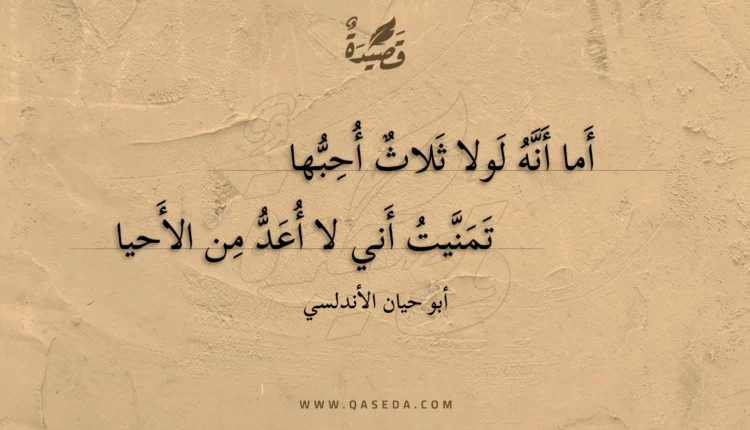 قَصِيدَةٌ
أَما أَنَّهُ لَولا ثَلاثٌ أُحِبُّها
تَمَنَّيتُ أَني لا أُعَدُّ مِن الأَحيا
أبو حيان الأندلسي
WWW.QASEDA.COM